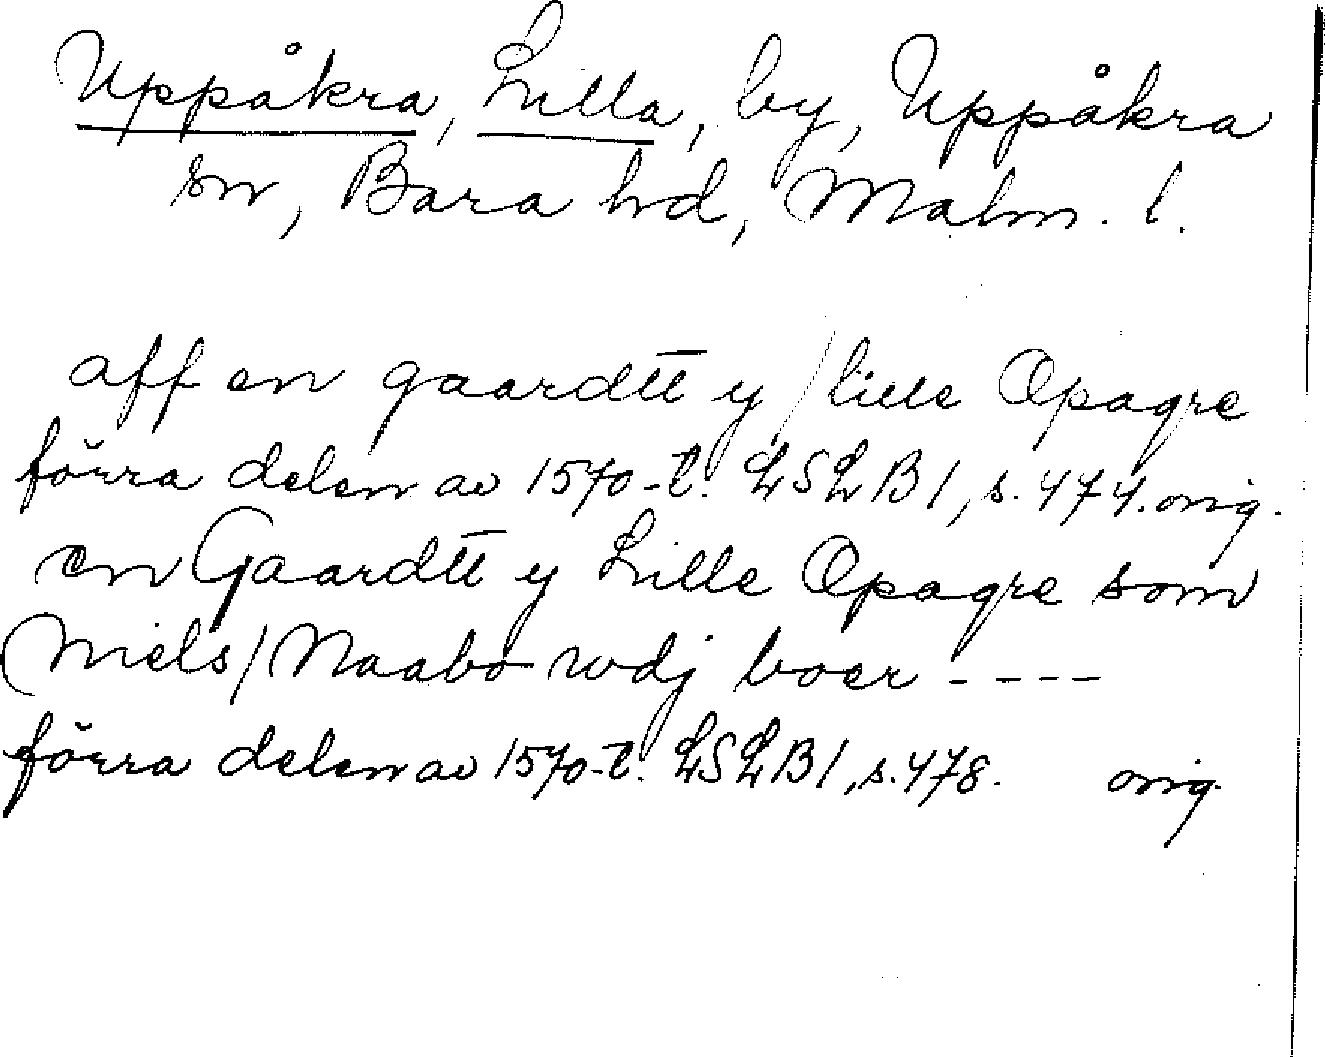 Uppåkra, Lilla, by, Uppåkra
sn, Bara hd, Malm. l.
aff en gaardtt y / lille Opagre
förra delen av 1570-t. LSLB1, s. 474. orig.
en Gaardtt y Lille Opagre som
Niels / Naabo wdj boer - - - -
förra delen av 1570-t. LSLB1, s. 478. orig.